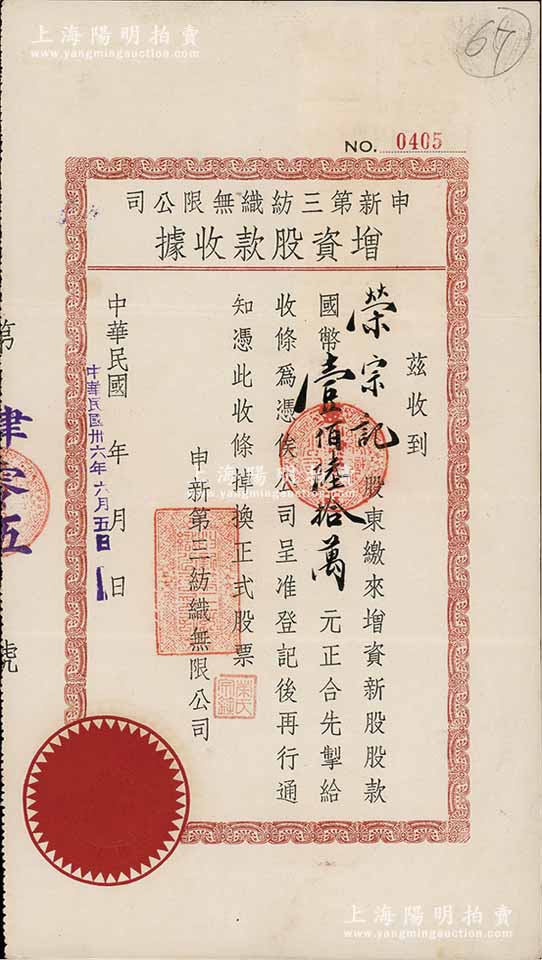 上海陽明拍賣
www.yangmingauction.com
67
NO. 0405
申新第三紡織無限公司
增資股款收據
茲收到
榮宗記 股東繳來增資新股股款
國幣壹佰陸拾萬 元正合先掣給
收條爲憑俟公司呈准登記後再行通
知憑此收條掉換正式股票
申新第三紡織無限公司
中華民國 年 月 日
中華民國卅六年六月五日
第 肆零五 號
上海陽明拍賣
www.yangmingauction.com